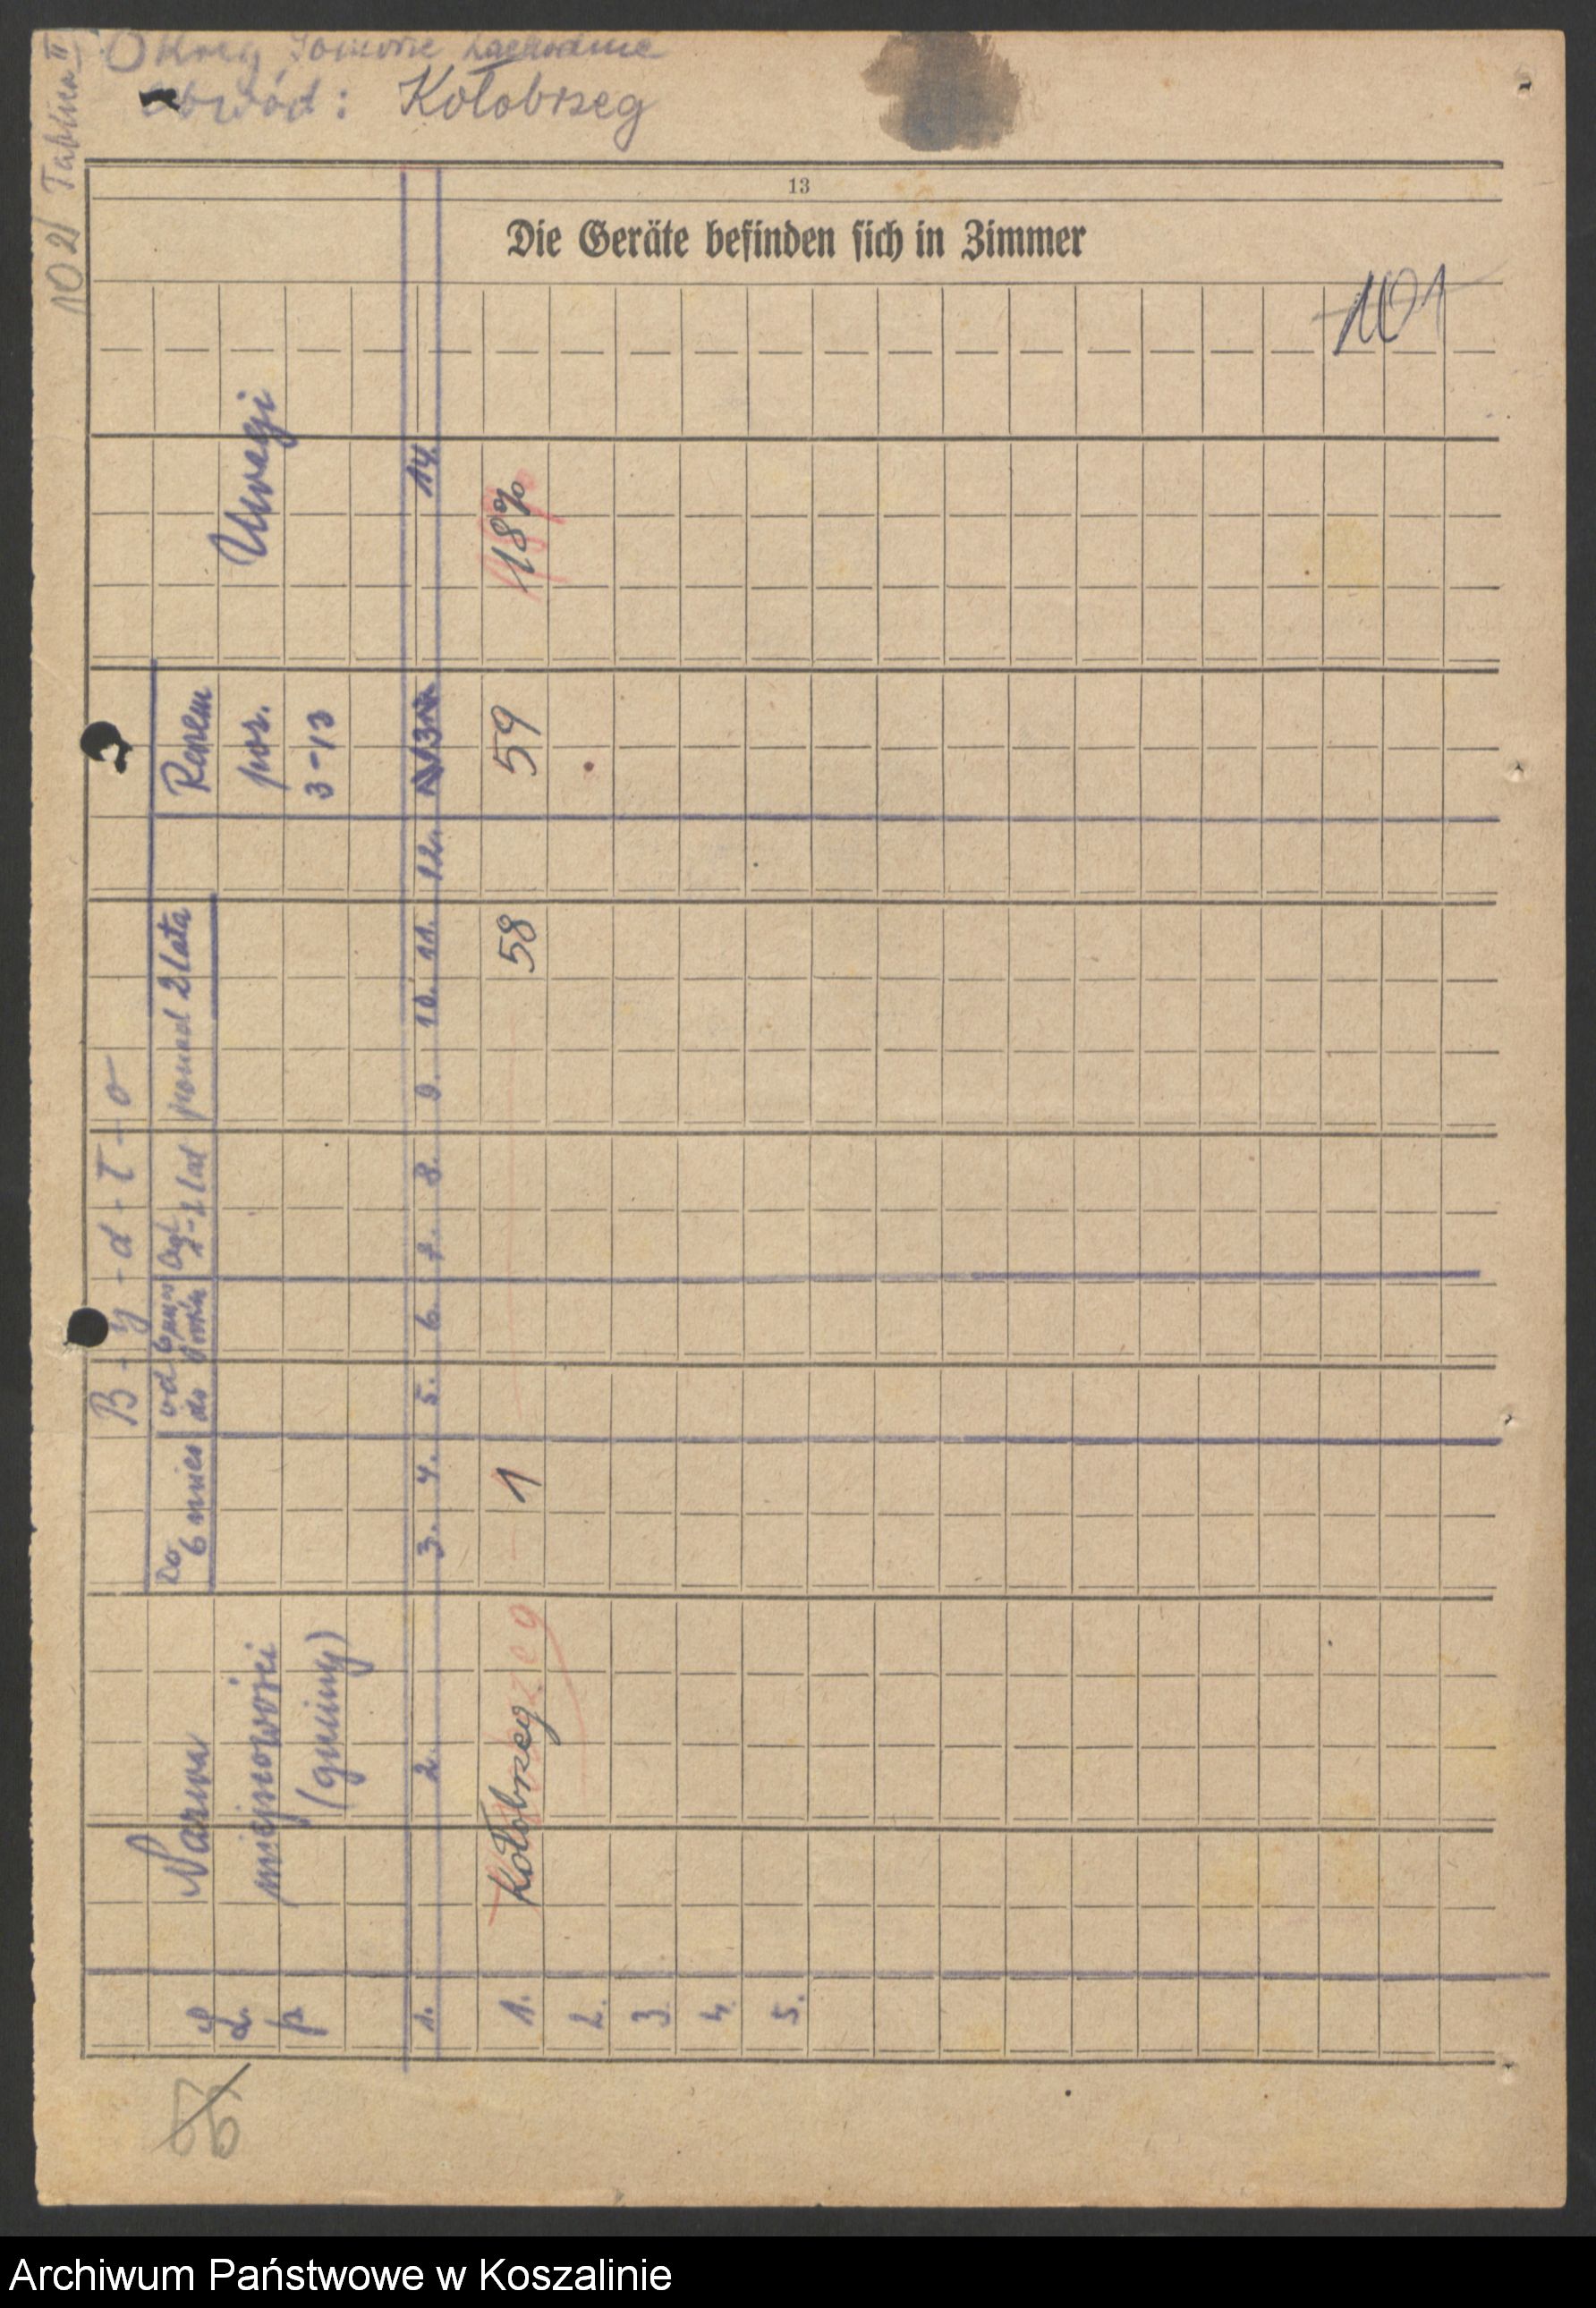 Okręg Pomorze Zachodnie
Obwód: Kołobrzeg
102/ Tablica II
13
Die Geräte befinden sich in Zimmer
101
Uwagi
Razem
poz.
3-13
B-y-d-ł-o
ponad 2 lata
od 1-2 lat
od 6 mies
do
Do
6 mies
Nazwa
miejscowości
(gminy)
L.
p.
1. 2. 3. 4. 5. 6. 7. 8. 9. 10. 11. 12. 13 14.
1. Kołobrzeg 1 58 59 18%
2.
3.
4.
5.
Archiwum Państwowe w Koszalinie